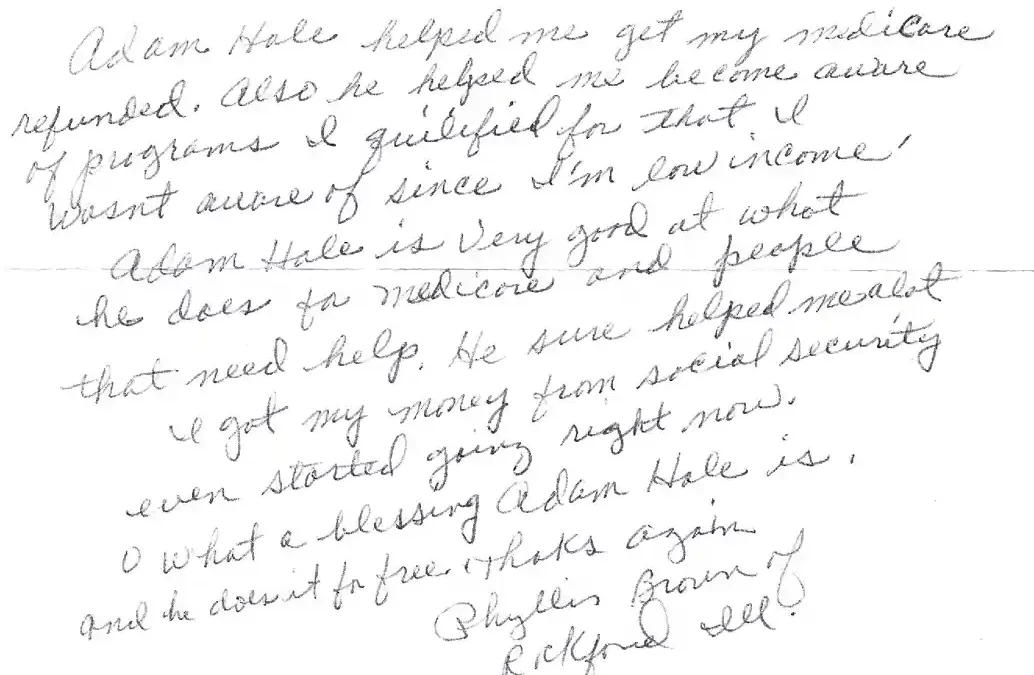 Adam Hale helped me get my medicare
refunded. Also he helped me become aware
of programs I quilified for that I
wasnt aware of since I'm low income.
Adam Hale is very good at what
he does for medicare and people
that need help. He sure helped me alot
I got my money from social security
even started going right now.
O what a blessing Adam Hale is.
and he does it for free. thaks again
Phyllis Brown of
Rockford Ill.